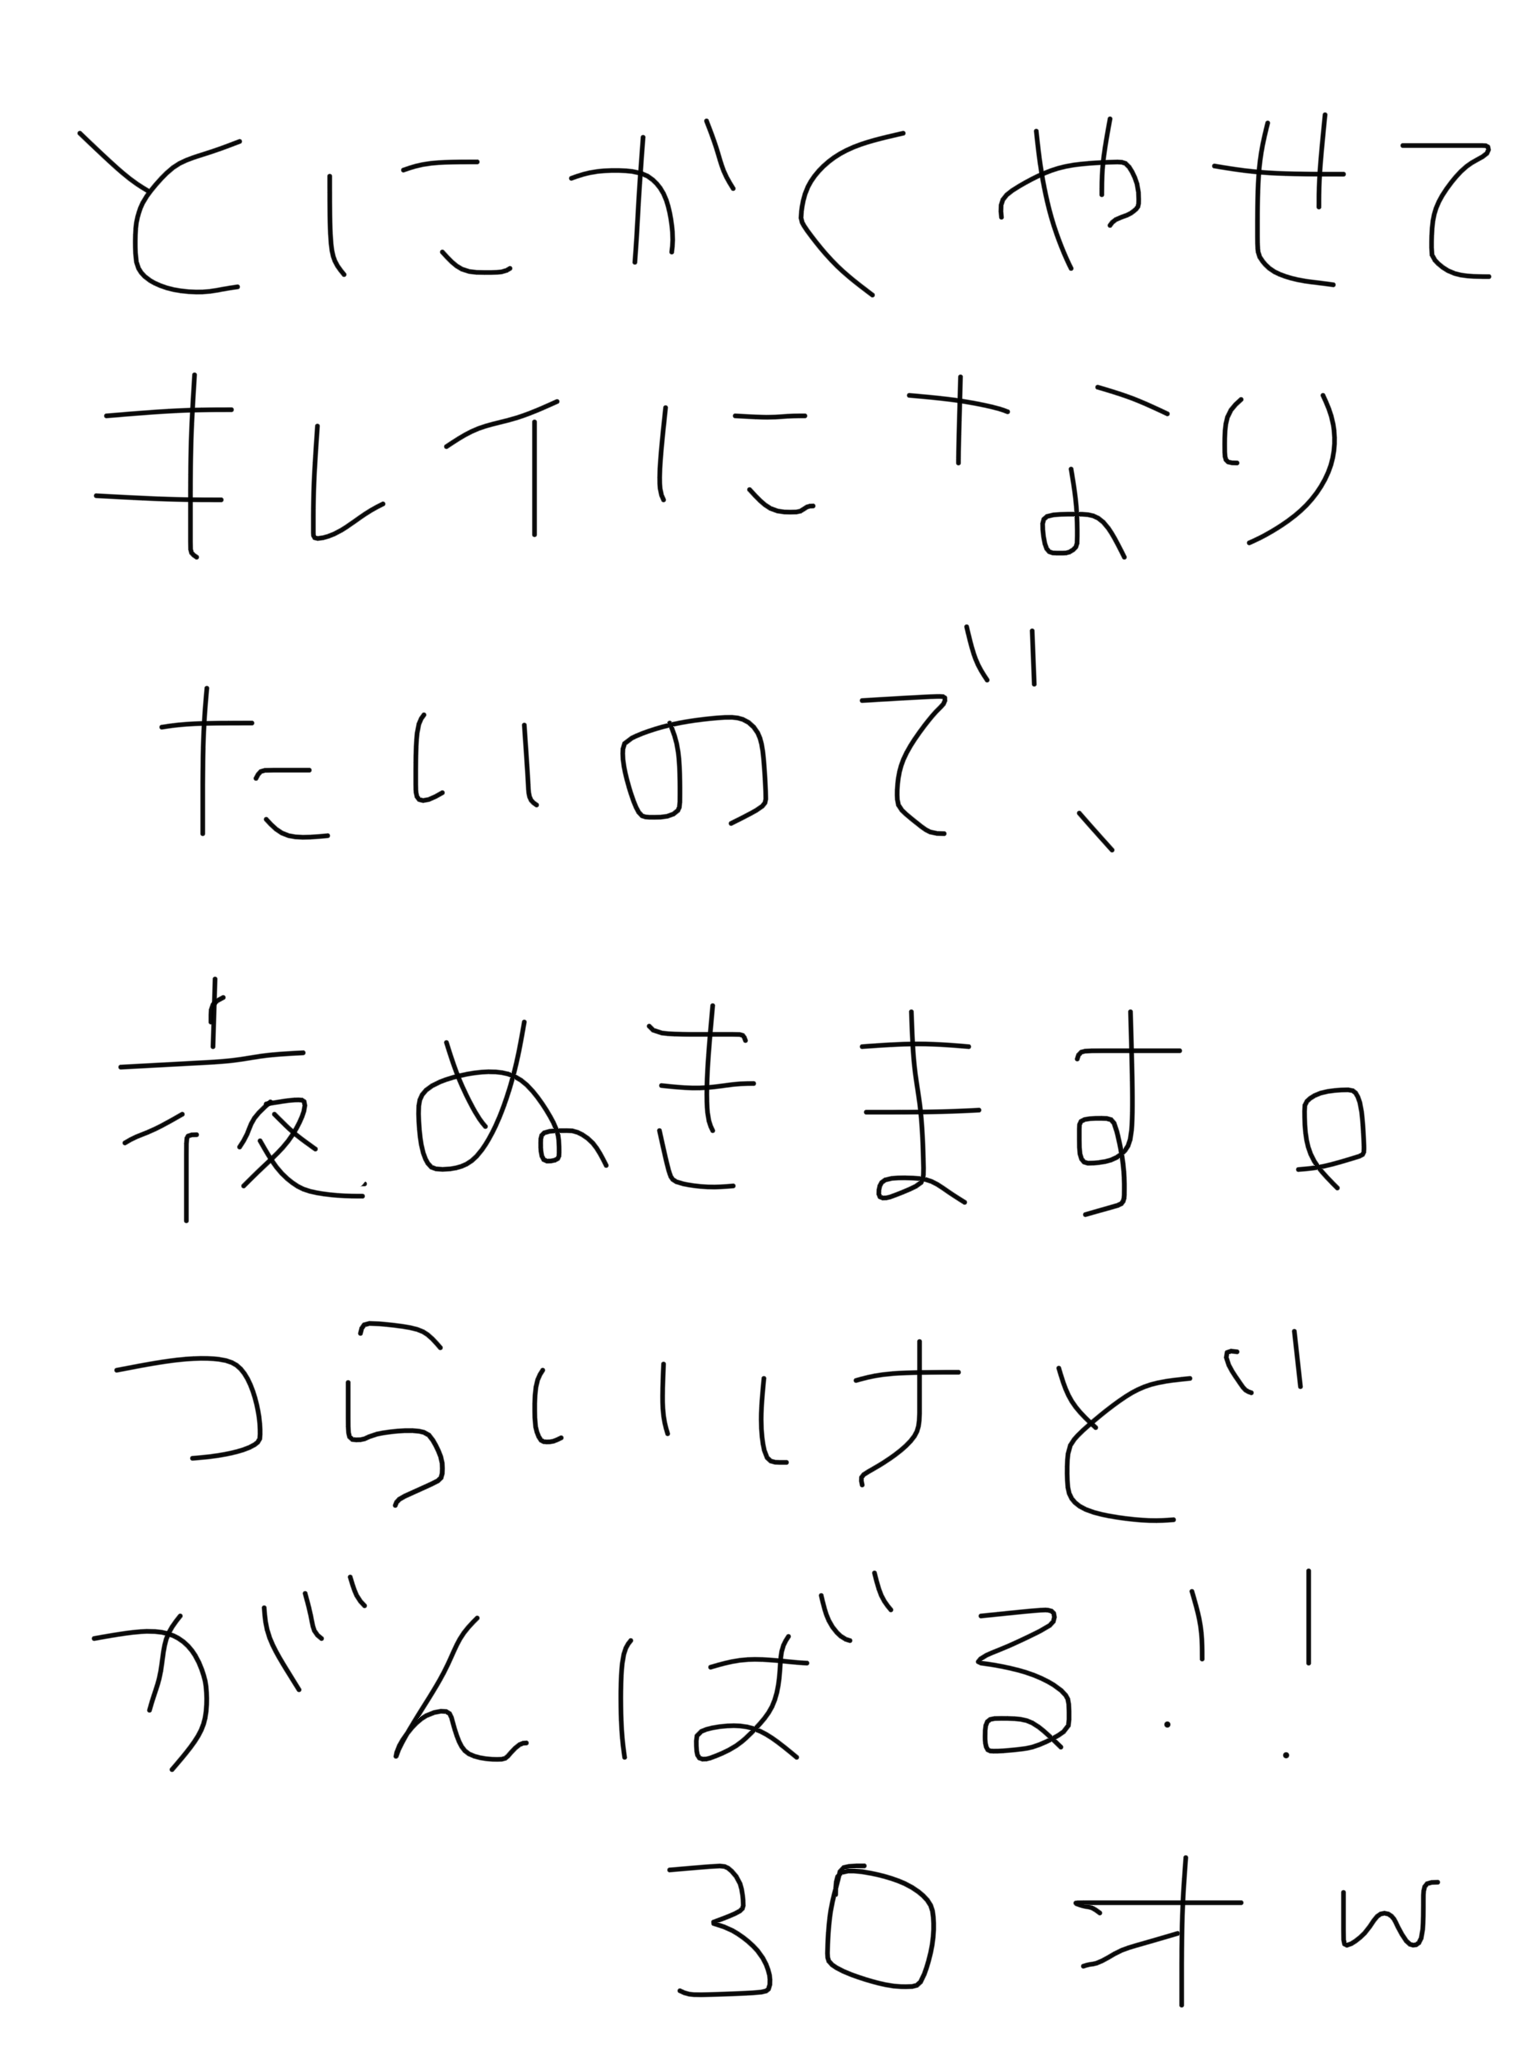 とにかくやせて
キレイになり
たいので、
夜ぬきます。
つらいけど
がんばる!!
30才w